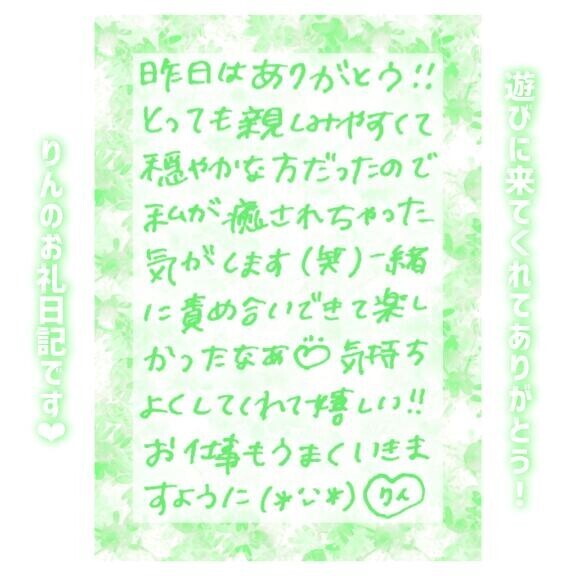 遊びに来てくれてありがとう！
昨日はありがとう!!
とっても親しみやすくて
穏やかな方だったので
私が癒されちゃった
気がします(笑)一緒
に責め合いできて楽し
かったなぁ♡気持ち
よくしてくれて嬉しい!!
お仕事もうまくいきま
すように(*ˊᵕˋ*)りん
りんのお礼日記です❤